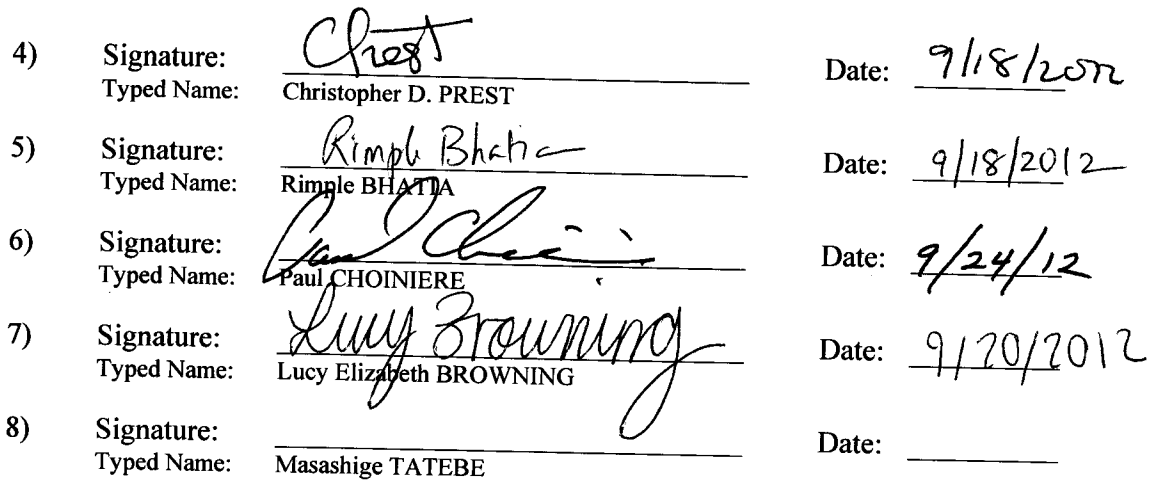 4) Signature: CPrest Date: 9/18/2012
Typed Name: Christopher D. PREST
5) Signature: Rimple Bhatia Date: 9/18/2012
Typed Name: Rimple BHATIA
6) Signature: Paul Choiniere Date: 9/24/12
Typed Name: Paul CHOINIERE
7) Signature: Lucy Browning Date: 9/20/2012
Typed Name: Lucy Elizabeth BROWNING
8) Signature: Date:
Typed Name: Masashige TATEBE